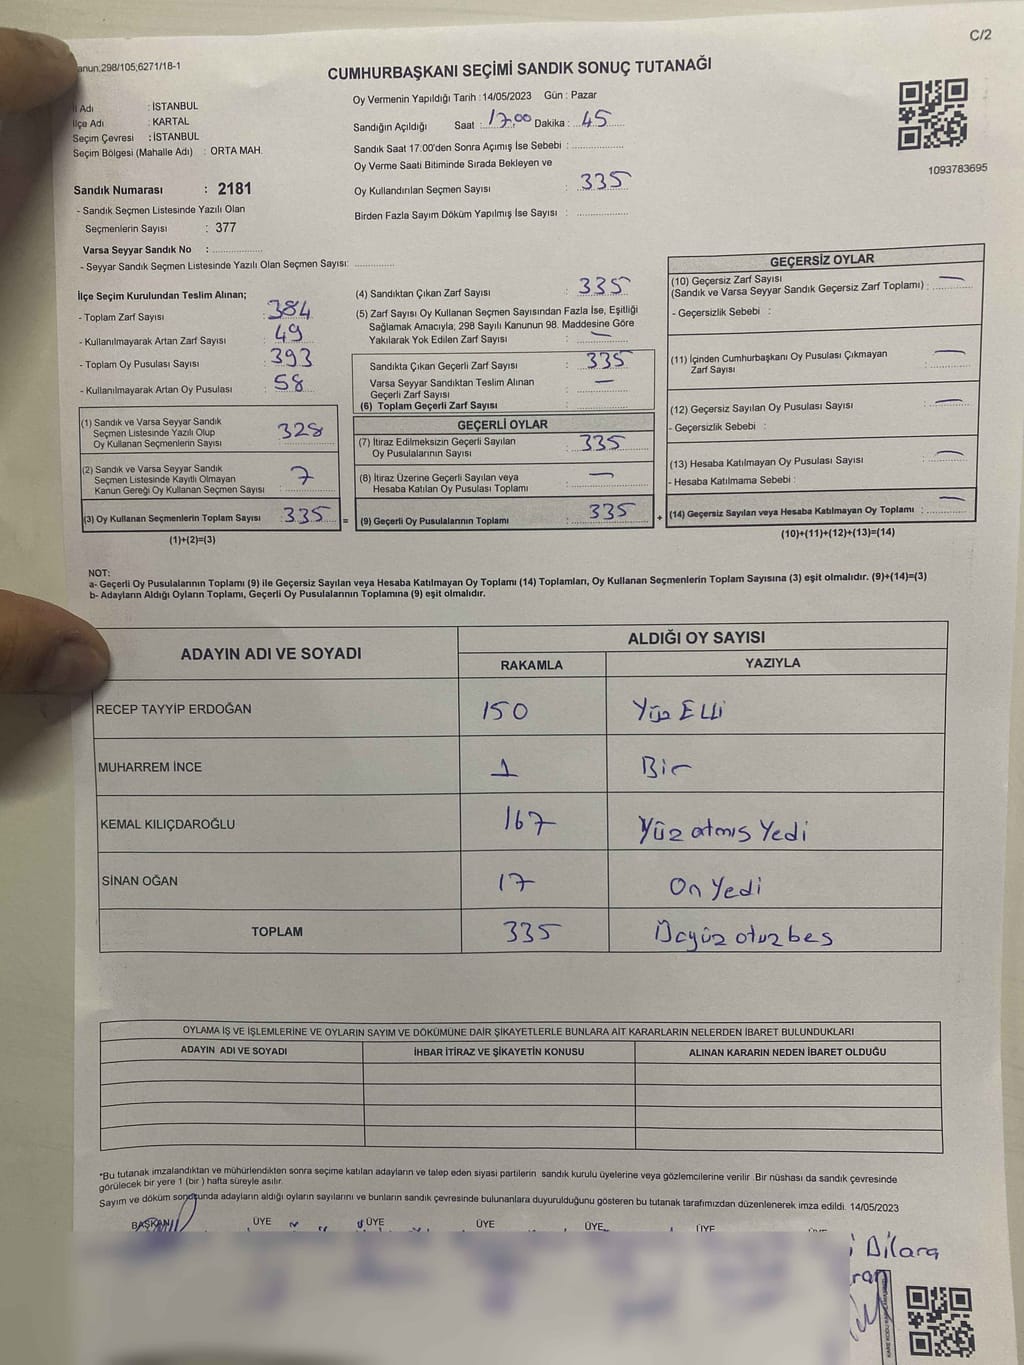 C/2
anun;298/105;6271/18-1
CUMHURBAŞKANI SEÇİMİ SANDIK SONUÇ TUTANAĞI
İl Adı : İSTANBUL
İlçe Adı : KARTAL
Seçim Çevresi : İSTANBUL
Seçim Bölgesi (Mahalle Adı) : ORTA MAH.
Sandık Numarası : 2181
- Sandık Seçmen Listesinde Yazılı Olan
Seçmenlerin Sayısı : 377
Varsa Seyyar Sandık No :
- Seyyar Sandık Seçmen Listesinde Yazılı Olan Seçmen Sayısı:
Oy Vermenin Yapıldığı Tarih :14/05/2023 Gün : Pazar
Sandığın Açıldığı Saat : 17.00 Dakika : 45
Sandık Saat 17:00'den Sonra Açımış İse Sebebi :
Oy Verme Saati Bitiminde Sırada Bekleyen ve
Oy Kullandırılan Seçmen Sayısı : 335
Birden Fazla Sayım Döküm Yapılmış İse Sayısı :
1093783695
İlçe Seçim Kurulundan Teslim Alınan;
- Toplam Zarf Sayısı : 384
- Kullanılmayarak Artan Zarf Sayısı : 49
- Toplam Oy Pusulası Sayısı : 393
- Kullanılmayarak Artan Oy Pusulası : 58
(1) Sandık ve Varsa Seyyar Sandık
Seçmen Listesinde Yazılı Olup
Oy Kullanan Seçmenlerin Sayısı : 328
(2) Sandık ve Varsa Seyyar Sandık
Seçmen Listesinde Kayıtlı Olmayan
Kanun Gereği Oy Kullanan Seçmen Sayısı : 7
(3) Oy Kullanan Seçmenlerin Toplam Sayısı : 335 =
(1)+(2)=(3)
(4) Sandıktan Çıkan Zarf Sayısı : 335
(5) Zarf Sayısı Oy Kullanan Seçmen Sayısından Fazla İse, Eşitliği
Sağlamak Amacıyla; 298 Sayılı Kanunun 98. Maddesine Göre
Yakılarak Yok Edilen Zarf Sayısı : —
Sandıkta Çıkan Geçerli Zarf Sayısı : 335
Varsa Seyyar Sandıktan Teslim Alınan
Geçerli Zarf Sayısı : —
(6) Toplam Geçerli Zarf Sayısı :
GEÇERLİ OYLAR
(7) İtiraz Edilmeksizin Geçerli Sayılan
Oy Pusulalarının Sayısı : 335
(8) İtiraz Üzerine Geçerli Sayılan veya
Hesaba Katılan Oy Pusulası Toplamı : —
(9) Geçerli Oy Pusulalarının Toplamı : 335 +
GEÇERSİZ OYLAR
(10) Geçersiz Zarf Sayısı
(Sandık ve Varsa Seyyar Sandık Geçersiz Zarf Toplamı) : —
- Geçersizlik Sebebi :
(11) İçinden Cumhurbaşkanı Oy Pusulası Çıkmayan
Zarf Sayısı : —
(12) Geçersiz Sayılan Oy Pusulası Sayısı : —
- Geçersizlik Sebebi :
(13) Hesaba Katılmayan Oy Pusulası Sayısı : —
- Hesaba Katılmama Sebebi :
(14) Geçersiz Sayılan veya Hesaba Katılmayan Oy Toplamı : —
(10)+(11)+(12)+(13)=(14)
NOT:
a- Geçerli Oy Pusulalarının Toplamı (9) ile Geçersiz Sayılan veya Hesaba Katılmayan Oy Toplamı (14) Toplamları, Oy Kullanan Seçmenlerin Toplam Sayısına (3) eşit olmalıdır. (9)+(14)=(3)
b- Adayların Aldığı Oyların Toplamı, Geçerli Oy Pusulalarının Toplamına (9) eşit olmalıdır.
ADAYIN ADI VE SOYADI
ALDIĞI OY SAYISI
RAKAMLA YAZIYLA
RECEP TAYYİP ERDOĞAN 150 Yüz Elli
MUHARREM İNCE 1 Bir
KEMAL KILIÇDAROĞLU 167 Yüz atmış Yedi
SİNAN OĞAN 17 On Yedi
TOPLAM 335 Üçyüz otuz beş
OYLAMA İŞ VE İŞLEMLERİNE VE OYLARIN SAYIM VE DÖKÜMÜNE DAİR ŞİKAYETLERLE BUNLARA AİT KARARLARIN NELERDEN İBARET BULUNDUKLARI
ADAYIN ADI VE SOYADI İHBAR İTİRAZ VE ŞİKAYETİN KONUSU ALINAN KARARIN NEDEN İBARET OLDUĞU
*Bu tutanak imzalandıktan ve mühürlendikten sonra seçime katılan adayların ve talep eden siyasi partilerin sandık kurulu üyelerine veya gözlemcilerine verilir. Bir nüshası da sandık çevresinde
görülecek bir yere 1 (bir ) hafta süreyle asılır.
Sayım ve döküm sonucunda adayların aldığı oyların sayılarını ve bunların sandık çevresinde bulunanlara duyurulduğunu gösteren bu tutanak tarafımızdan düzenlenerek imza edildi. 14/05/2023
BAŞKAN ÜYE ÜYE ÜYE ÜYE ÜYE
Dilara